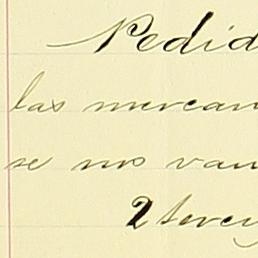 Pedid
las mercan
se nos van
2 terc